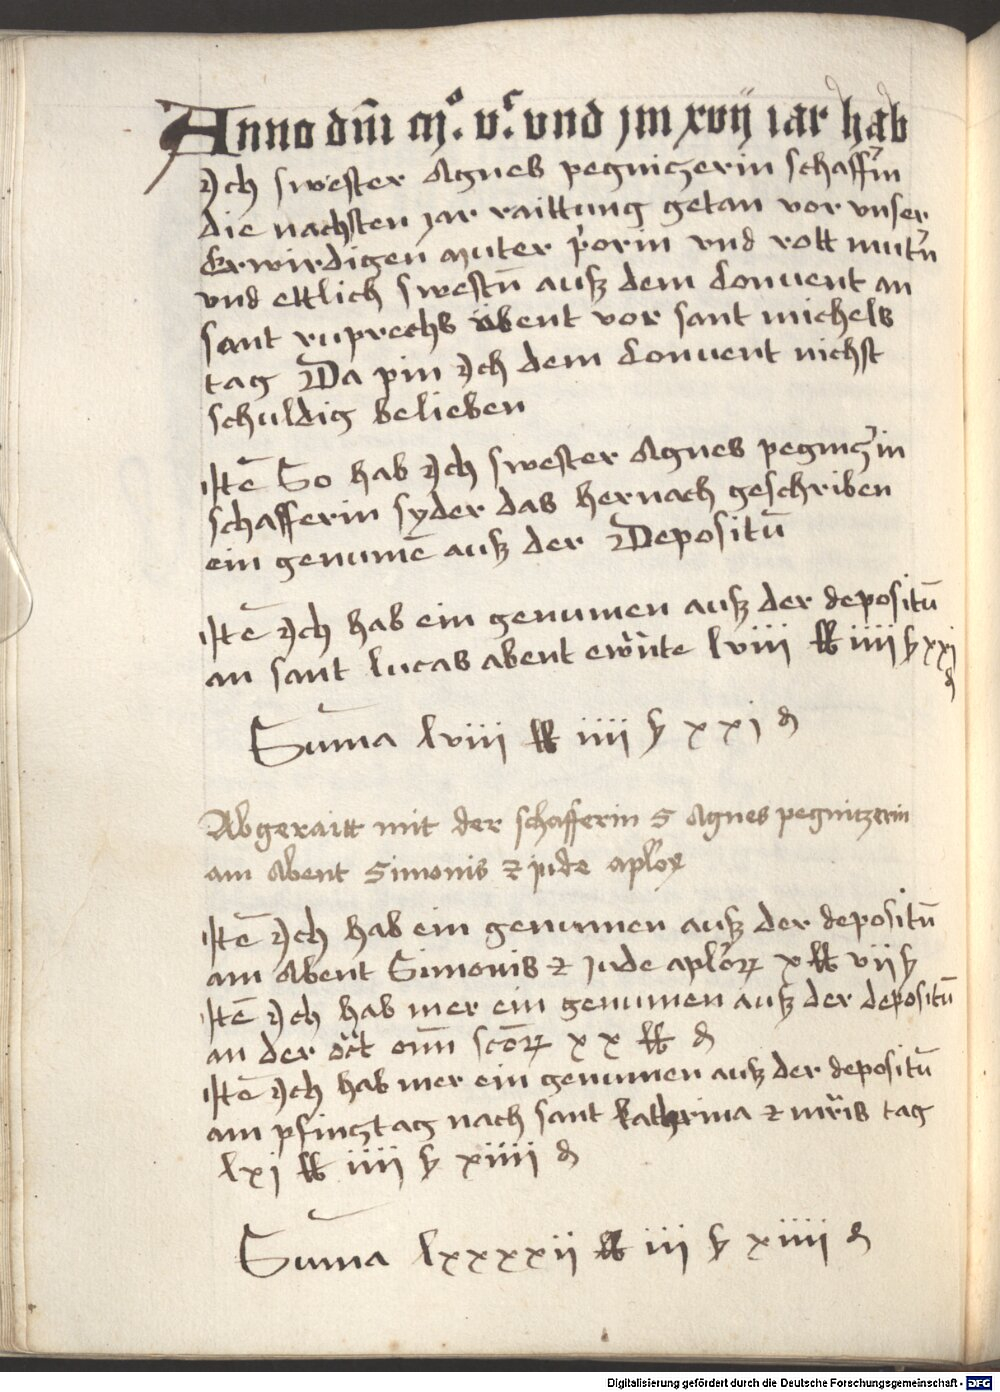 Anno dm̄ mͦ. vͨ. vnd jm xvij iar hab
Ich swester Agnes pegniczerin schaff̄in
die nachsten jar raittung getan vor vnser
Erwirdigen muter p̄orin vnd rott mut̄n
vnd ettlich swest̄n auß dem Conuent an
sant ruprechs abent vor sant michels
tag Da pin Ich dem Conuent nichst
schuldig belieben
Itē So hab Ich swester Agnes pegnicz̄in
schafferin syder das hernach geschriben
ein genumē auß der Depositū
Itē Ich hab ein genumen auß der depositū
an sant lucas abent lviii ℔ iiii ß xxi
₰
Suma lviii ℔ iiii ß xxi ₰
Abgeraitt mit der schafferin S Agnes pegnitzerin
am Abent Simonis ⁊ jude aplōꝝ
Itē Ich hab ein genumen auß der depositū
am Abent Simonis ⁊ jude aplōꝝ x ℔ vii ß
Itē Ich hab mer ein genumen auß der depositū
an der oct̄ om̄ scōꝝ xx ℔ ₰
Itē Ich hab mer ein genumen auß der depositū
am pfincztag nach sant kathrina ⁊ mr̄is tag
lxi ℔ iiii ß xiiii ₰
Suma lxxxxii ℔ iii ß xiiii ₰
Digitalisierung gefördert durch die Deutsche Forschungsgemeinschaft - DFG